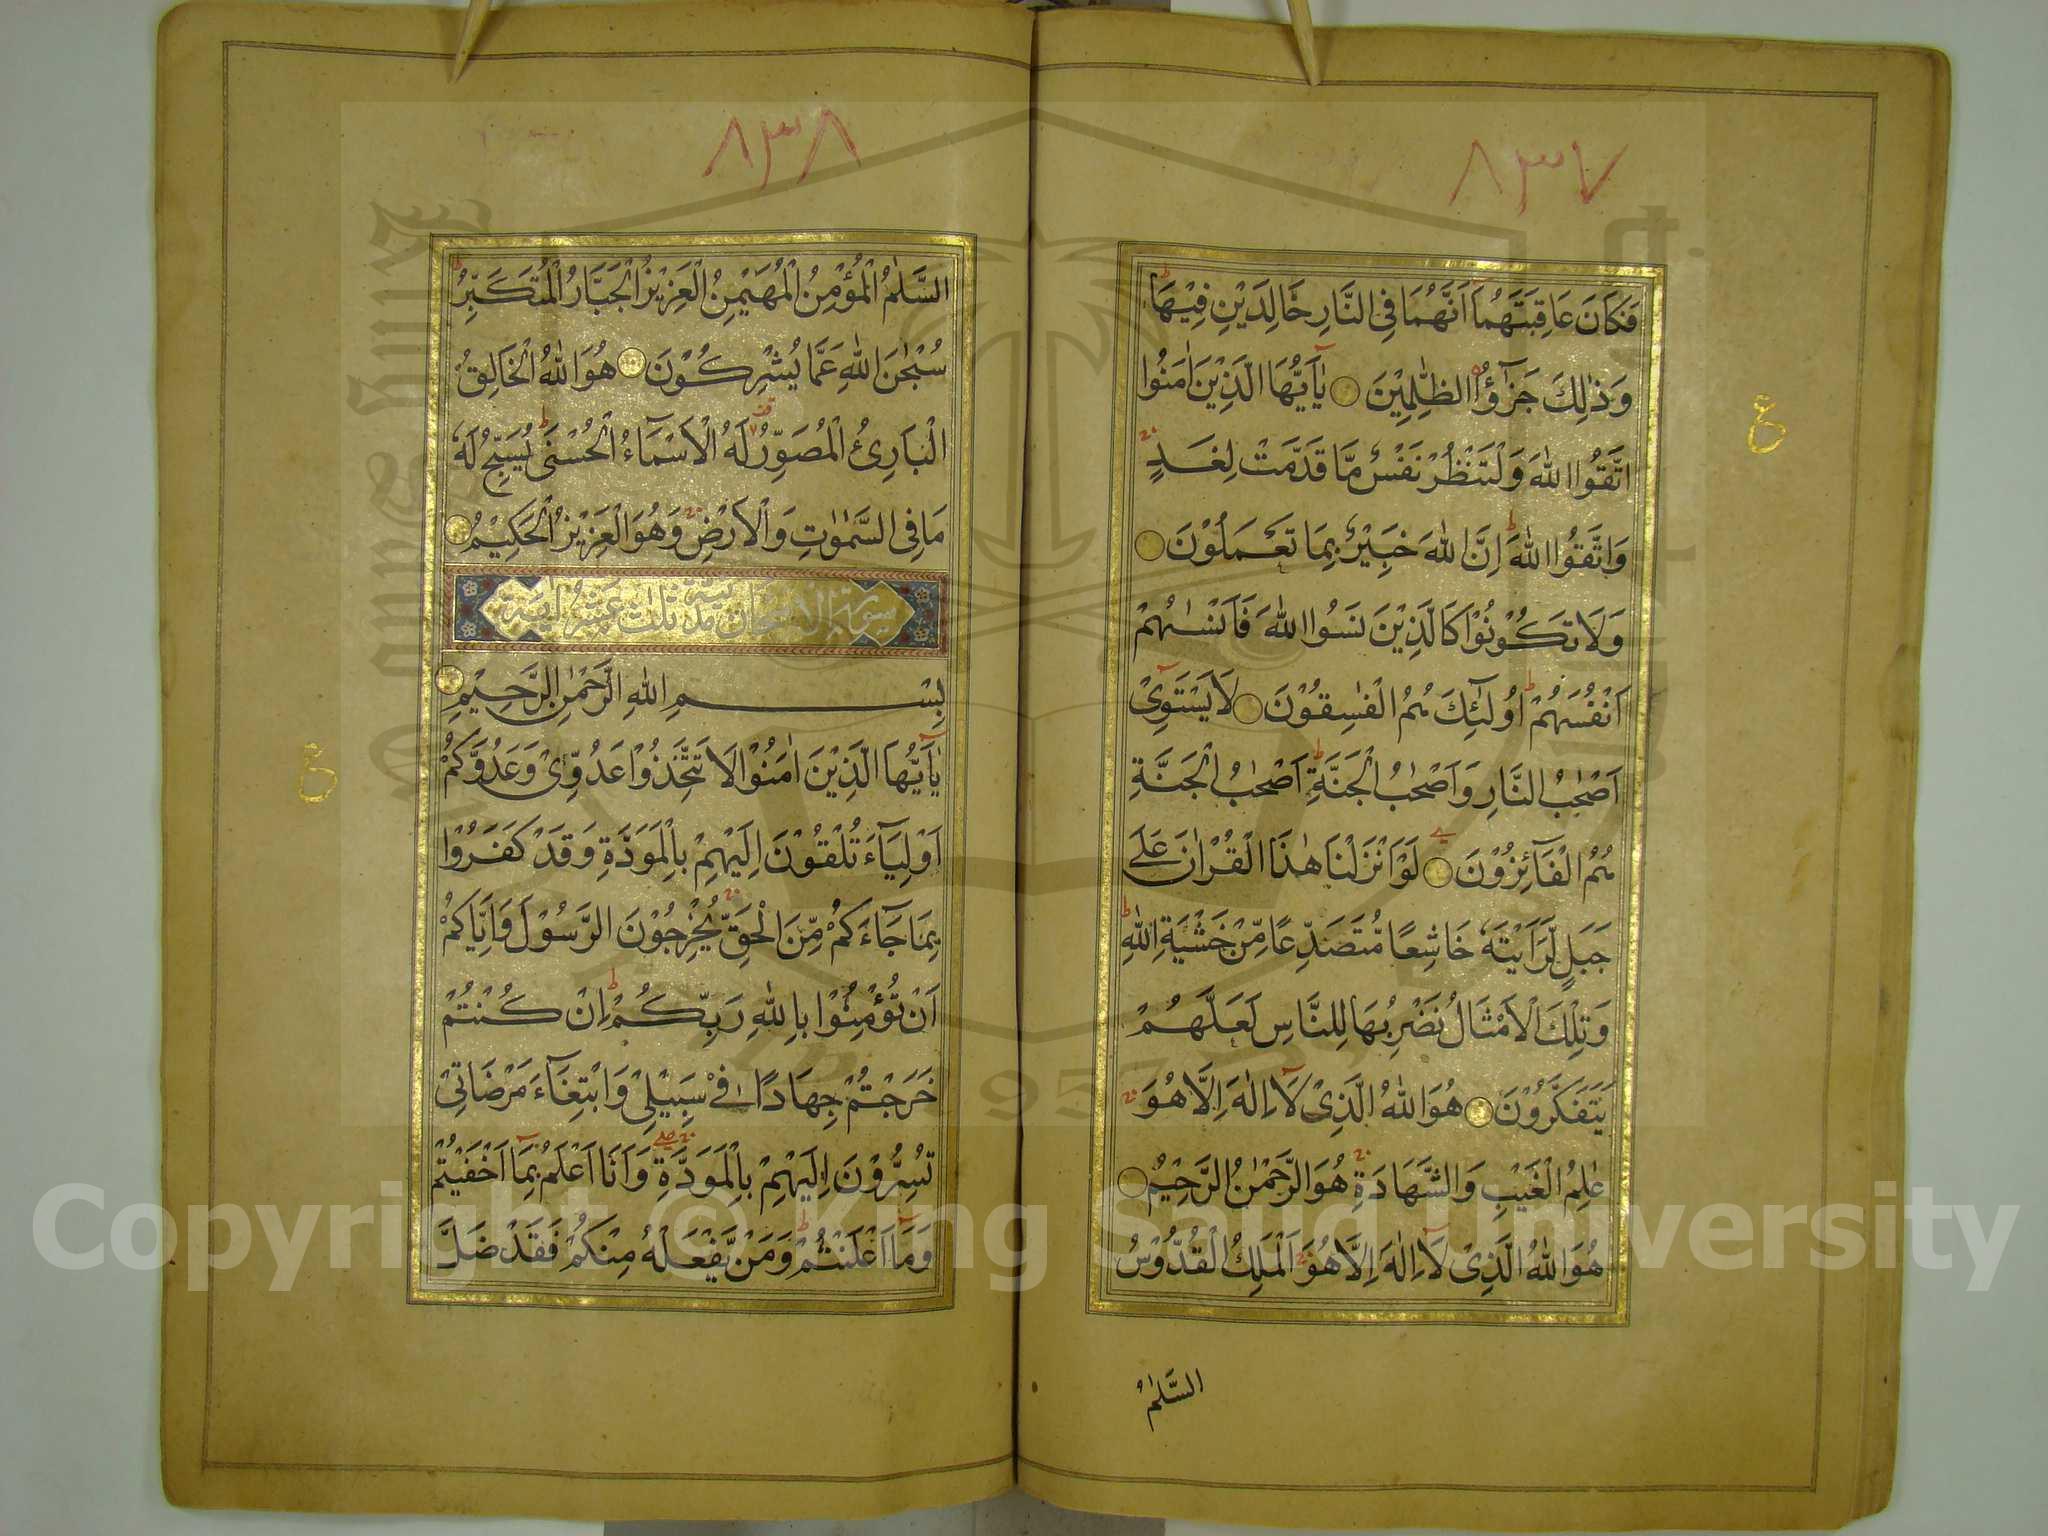 ٨٣٧
فَكَانَ عَاقِبَتَهُمَا اَنَّهُمَا فِى النَّارِ خَالِدَيْنِ فِيْهَا ط
وَذٰلِكَ جَزٰٓؤُا الظّٰلِمِيْنَ يٰٓاَيُّهَا الَّذِيْنَ اٰمَنُوا
اتَّقُوا اللّٰهَ وَلْتَنْظُرْ نَفْسٌ مَّا قَدَّمَتْ لِغَدٍ
وَاتَّقُوا اللّٰهَ ط اِنَّ اللّٰهَ خَبِيْرٌ بِمَا تَعْمَلُوْنَ
وَلَا تَكُوْنُوْا كَالَّذِيْنَ نَسُوا اللّٰهَ فَاَنْسٰىهُمْ
اَنْفُسَهُمْ ط اُولٰٓئِكَ هُمُ الْفٰسِقُوْنَ لَا يَسْتَوِىْٓ
اَصْحٰبُ النَّارِ وَاَصْحٰبُ الْجَنَّةِ ط اَصْحٰبُ الْجَنَّةِ
هُمُ الْفَآئِزُوْنَ لَوْ اَنْزَلْنَا هٰذَا الْقُرْاٰنَ عَلٰى
جَبَلٍ لَّرَاَيْتَهٗ خَاشِعًا مُّتَصَدِّعًا مِّنْ خَشْيَةِ اللّٰهِ ط
وَتِلْكَ الْاَمْثَالُ نَضْرِبُهَا لِلنَّاسِ لَعَلَّهُمْ
يَتَفَكَّرُوْنَ هُوَ اللّٰهُ الَّذِىْ لَآ اِلٰهَ اِلَّا هُوَ
عٰلِمُ الْغَيْبِ وَالشَّهَادَةِ هُوَ الرَّحْمٰنُ الرَّحِيْمُ
هُوَ اللّٰهُ الَّذِىْ لَآ اِلٰهَ اِلَّا هُوَ اَلْمَلِكُ الْقُدُّوْسُ
السَّلٰمُ
ع
٨٣٨
السَّلٰمُ الْمُؤْمِنُ الْمُهَيْمِنُ الْعَزِيْزُ الْجَبَّارُ الْمُتَكَبِّرُ ط
سُبْحٰنَ اللّٰهِ عَمَّا يُشْرِكُوْنَ هُوَ اللّٰهُ الْخَالِقُ
الْبَارِئُ الْمُصَوِّرُ لَهُ الْاَسْمَآءُ الْحُسْنٰى ط يُسَبِّحُ لَهٗ
مَا فِى السَّمٰوٰتِ وَالْاَرْضِ وَهُوَ الْعَزِيْزُ الْحَكِيْمُ
سورة الامتحان مدنية ثلث عشر اية
بِسْمِ اللّٰهِ الرَّحْمٰنِ الرَّحِيْمِ
يٰٓاَيُّهَا الَّذِيْنَ اٰمَنُوْا لَا تَتَّخِذُوْا عَدُوِّىْ وَعَدُوَّكُمْ
اَوْلِيَآءَ تُلْقُوْنَ اِلَيْهِمْ بِالْمَوَدَّةِ وَقَدْ كَفَرُوْا
بِمَا جَآءَكُمْ مِّنَ الْحَقِّ يُخْرِجُوْنَ الرَّسُوْلَ وَاِيَّاكُمْ
اَنْ تُؤْمِنُوْا بِاللّٰهِ رَبِّكُمْ ط اِنْ كُنْتُمْ
خَرَجْتُمْ جِهَادًا فِىْ سَبِيْلِىْ وَابْتِغَآءَ مَرْضَاتِىْ
تُسِرُّوْنَ اِلَيْهِمْ بِالْمَوَدَّةِ وَاَنَا اَعْلَمُ بِمَآ اَخْفَيْتُمْ
وَمَآ اَعْلَنْتُمْ ط وَمَنْ يَّفْعَلْهُ مِنْكُمْ فَقَدْ ضَلَّ
ع
Copyright © King Saud University